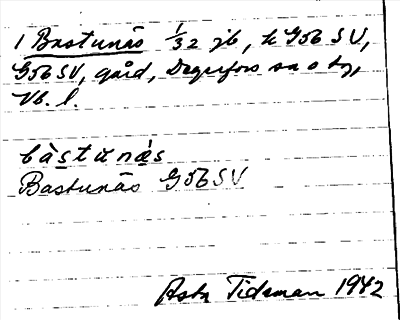 1 Bastunäs 1/32 jb, k G5b SV,
G5b SV, gård, Degerfors sn o tg,
Vb. l.
bàstunä̀s
Bastunäs G5b SV
Asta Tideman 1942